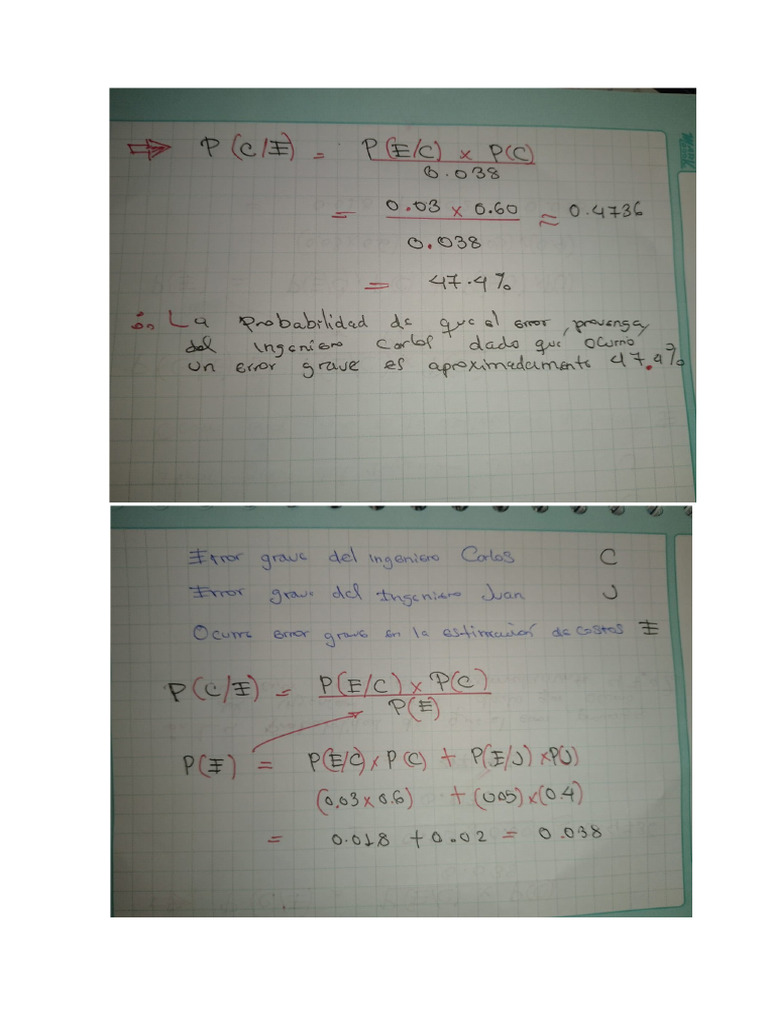 ⇒ P(C/E) = P(E/C) x P(C)
0.038
= 0.03 x 0.60 ≈ 0.4736
0.038
= 47.4%
∴ La Probabilidad de que el error, provenga
del Ingeniero Carlos dado que Ocurrio
un error grave es aproximadamente 47.4%
Error grave del ingeniero Carlos C
Error grave del Ingeniero Juan J
Ocurre error grave en la estimación de costos E
P(C/E) = P(E/C) x P(C)
P(E)
P(E) = P(E/C) x P(C) + P(E/J) x P(J)
(0.03 x 0.6) + (0.05) x (0.4)
= 0.018 + 0.02 = 0.038